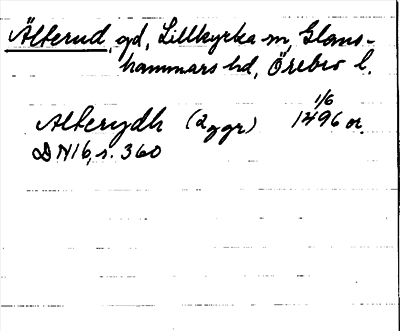 Älterud, gd, Lillkyrka sn, Glans-
hammars hd, Örebro l.
1/6
Alterydh (2 ggr) 1496 or.
DN 16, s. 360